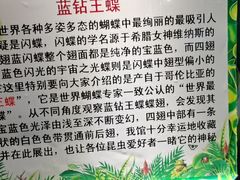 蓝钻王蝶
世界各种多姿多态的蝴蝶中最绚丽的最吸引人
疑是闪蝶，闪蝶的学名源于希腊女神维纳斯的
翅蓝闪蝶整个翅面都是纯净的宝蓝色，而四翅
蓝色闪光的宇宙之光蝶则是闪蝶中翅型偏小的
在这里特别要向大家介绍的是产自于哥伦比亚的
王蝶”，它是世界蝴蝶专家一致公认的“世界最
蝶”。从不同角度观察蓝钻王蝶蝶翅，会发现其
宝蓝色光泽由浅至深不断变幻，四翅中部有一条
状的白色色带贯通前后翅，我馆十分幸运地收藏
并在此展出，也让各位昆虫爱好者一睹它的神秘